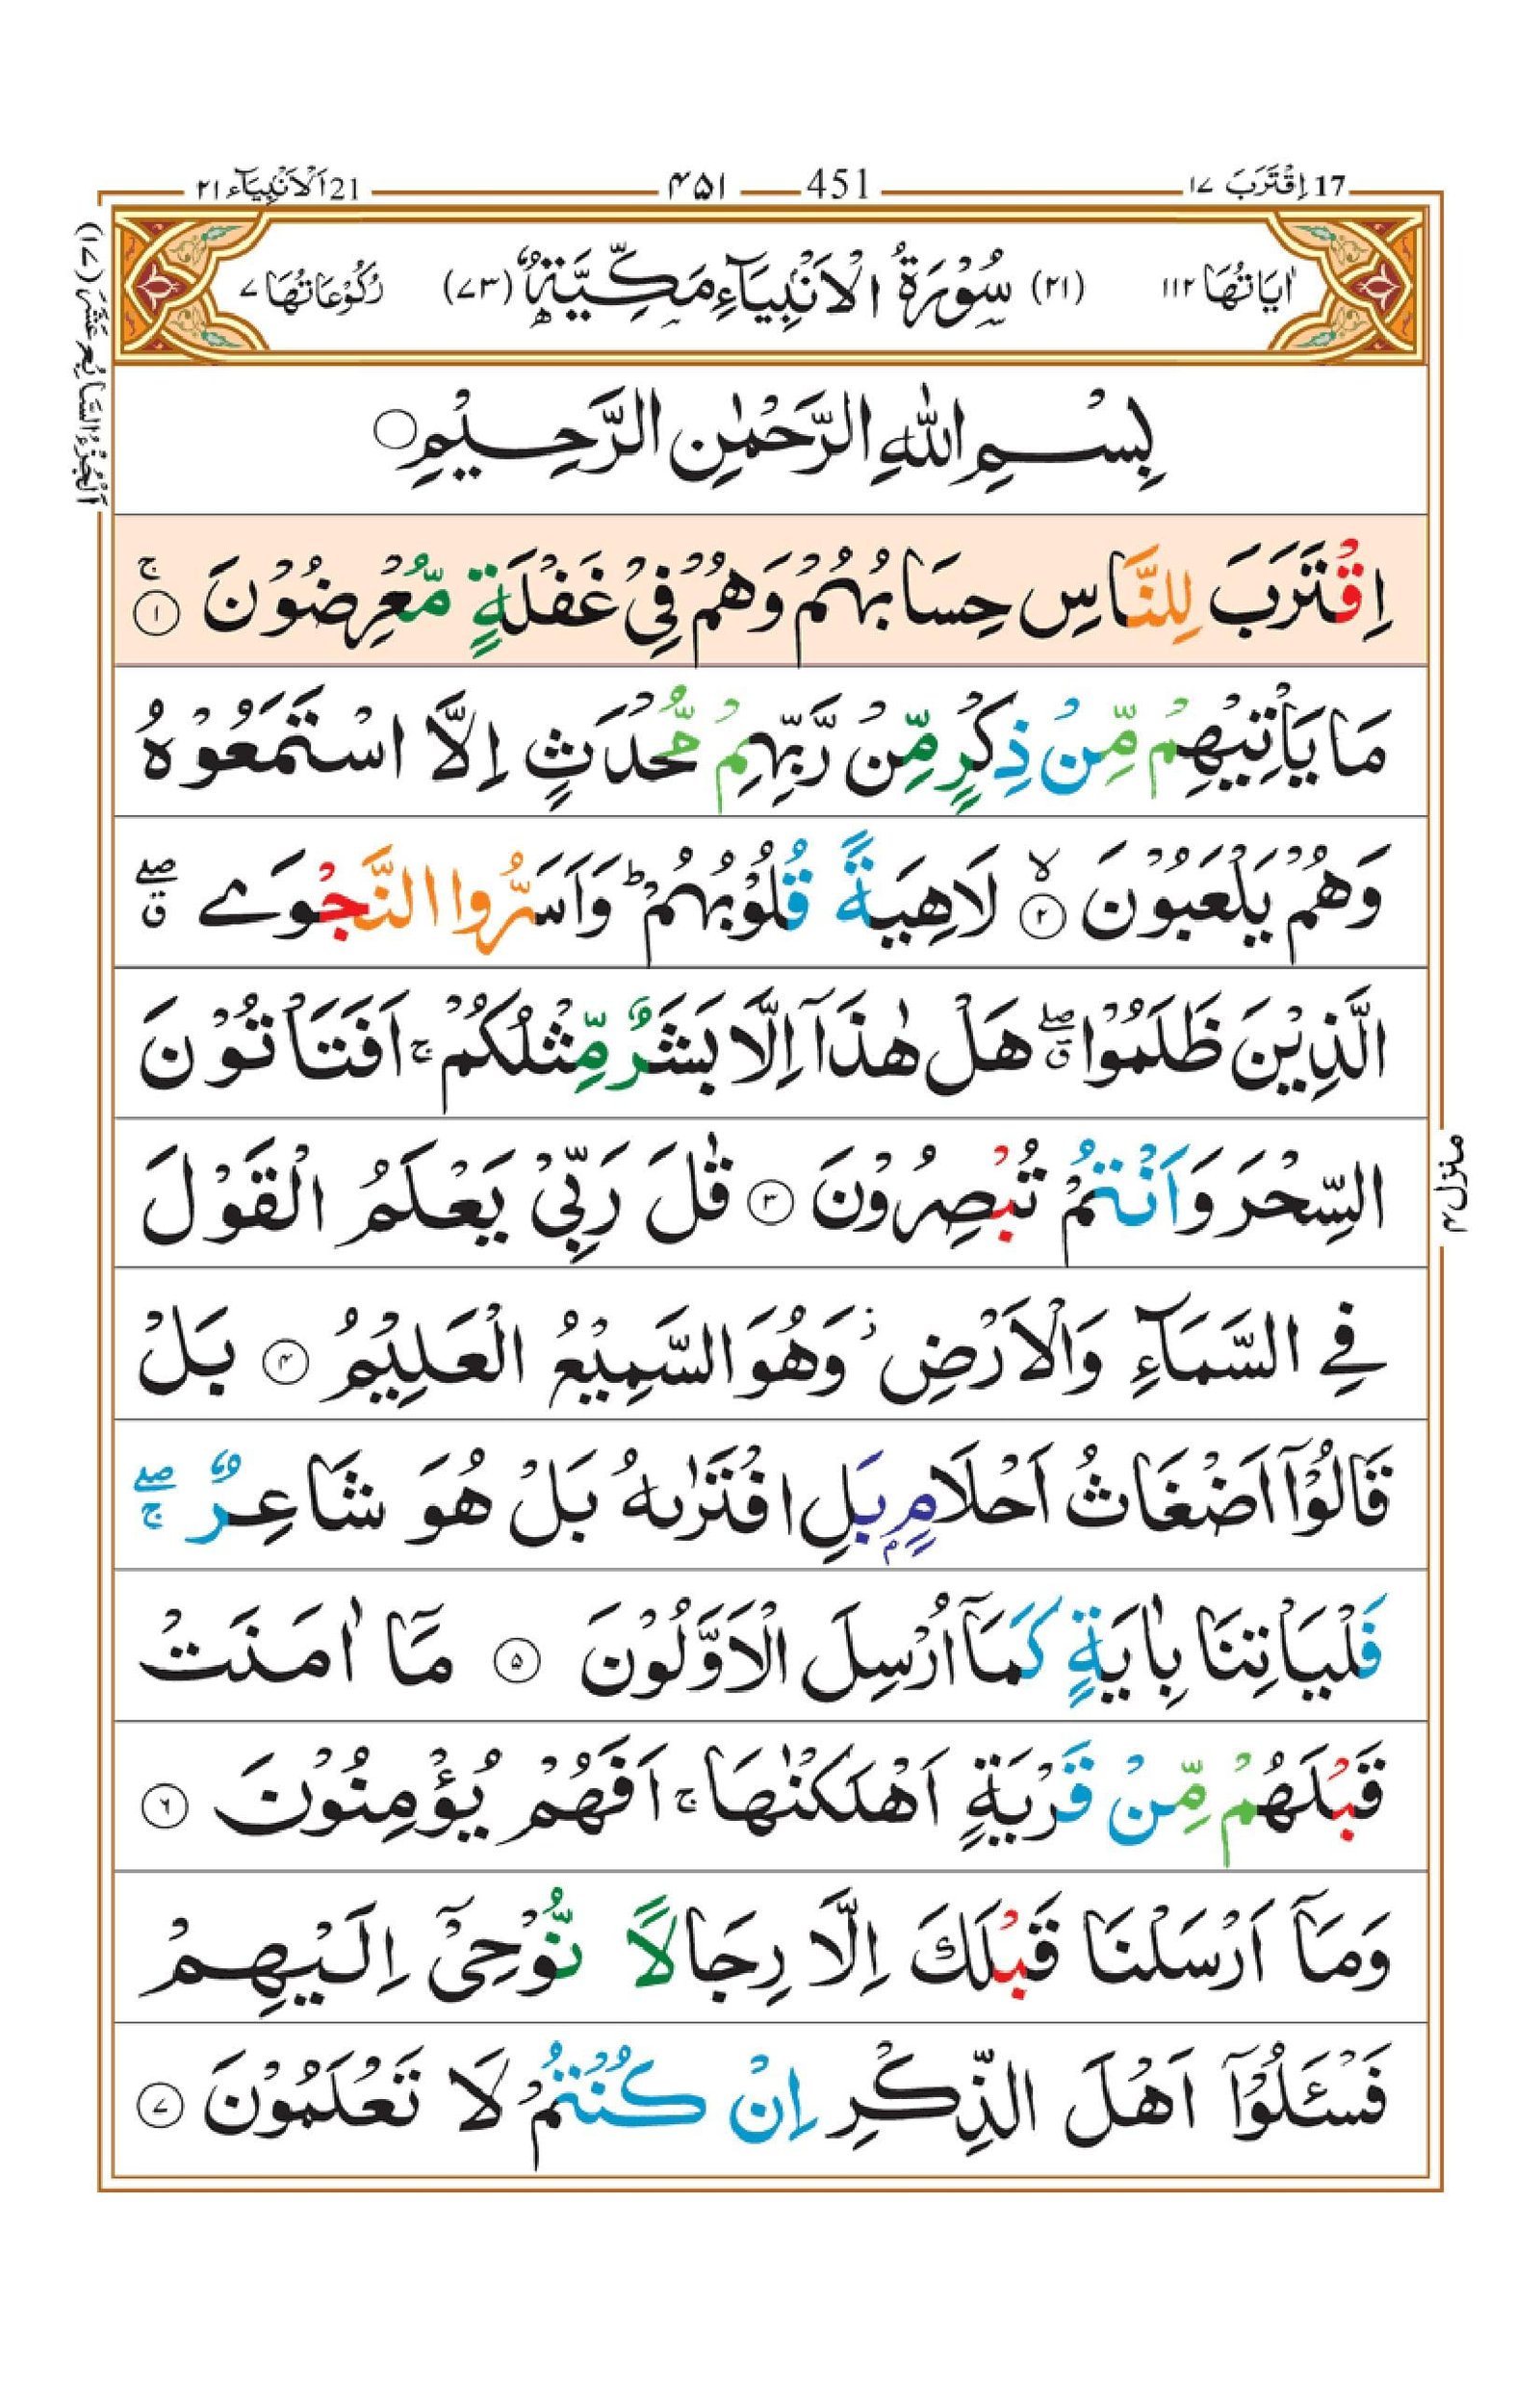 17 اِقْتَرَبَ ١٧ 451 ۴۵۱ 21 اَلْاَنْۢبِيَآء ٢١
اٰيَاتُهَا ١١٢ (٢١) سُوْرَةُ الْاَنْۢبِيَآءِ مَكِّيَّةٌ (٧٣) رُكُوْعَاتُهَا ٧
اَلْجُزْءُ السَّابِعَ عَشَرَ (١٧)
بِسْمِ اللهِ الرَّحْمٰنِ الرَّحِيْمِ
اِقْتَرَبَ لِلنَّاسِ حِسَابُهُمْ وَهُمْ فِیْ غَفْلَةٍ مُّعْرِضُوْنَ ۚ ١
مَا يَاْتِيْهِمْ مِّنْ ذِكْرٍ مِّنْ رَّبِّهِمْ مُّحْدَثٍ اِلَّا اسْتَمَعُوْهُ
وَهُمْ يَلْعَبُوْنَ ۙ ٢ لَاهِيَةً قُلُوْبُهُمْ ؕ وَاَسَرُّوا النَّجْوَے ۖق
الَّذِيْنَ ظَلَمُوْا ۖق هَلْ هٰذَاۤ اِلَّا بَشَرٌ مِّثْلُكُمْ ۚ اَفَتَاْتُوْنَ
السِّحْرَ وَاَنْتُمْ تُبْصِرُوْنَ ٣ قٰلَ رَبِّیْ يَعْلَمُ الْقَوْلَ
فِے السَّمَآءِ وَالْاَرْضِ ز وَهُوَ السَّمِيْعُ الْعَلِيْمُ ۴ بَلْ
قَالُوْۤا اَضْغَاثُ اَحْلَامٍۭ بَلِ افْتَرٰىهُ بَلْ هُوَ شَاعِرٌ ۖج
فَلْيَاْتِنَا بِاٰيَةٍ كَمَاۤ اُرْسِلَ الْاَوَّلُوْنَ ۵ مَاۤ اٰمَنَتْ
قَبْلَهُمْ مِّنْ قَرْيَةٍ اَهْلَكْنٰهَا ۚ اَفَهُمْ يُؤْمِنُوْنَ ٦
وَمَاۤ اَرْسَلْنَا قَبْلَكَ اِلَّا رِجَالًا نُّوْحِیْۤ اِلَيْهِمْ
فَسْـَٔلُوْۤا اَهْلَ الذِّكْرِ اِنْ كُنْتُمْ لَا تَعْلَمُوْنَ ٧
منزل۴